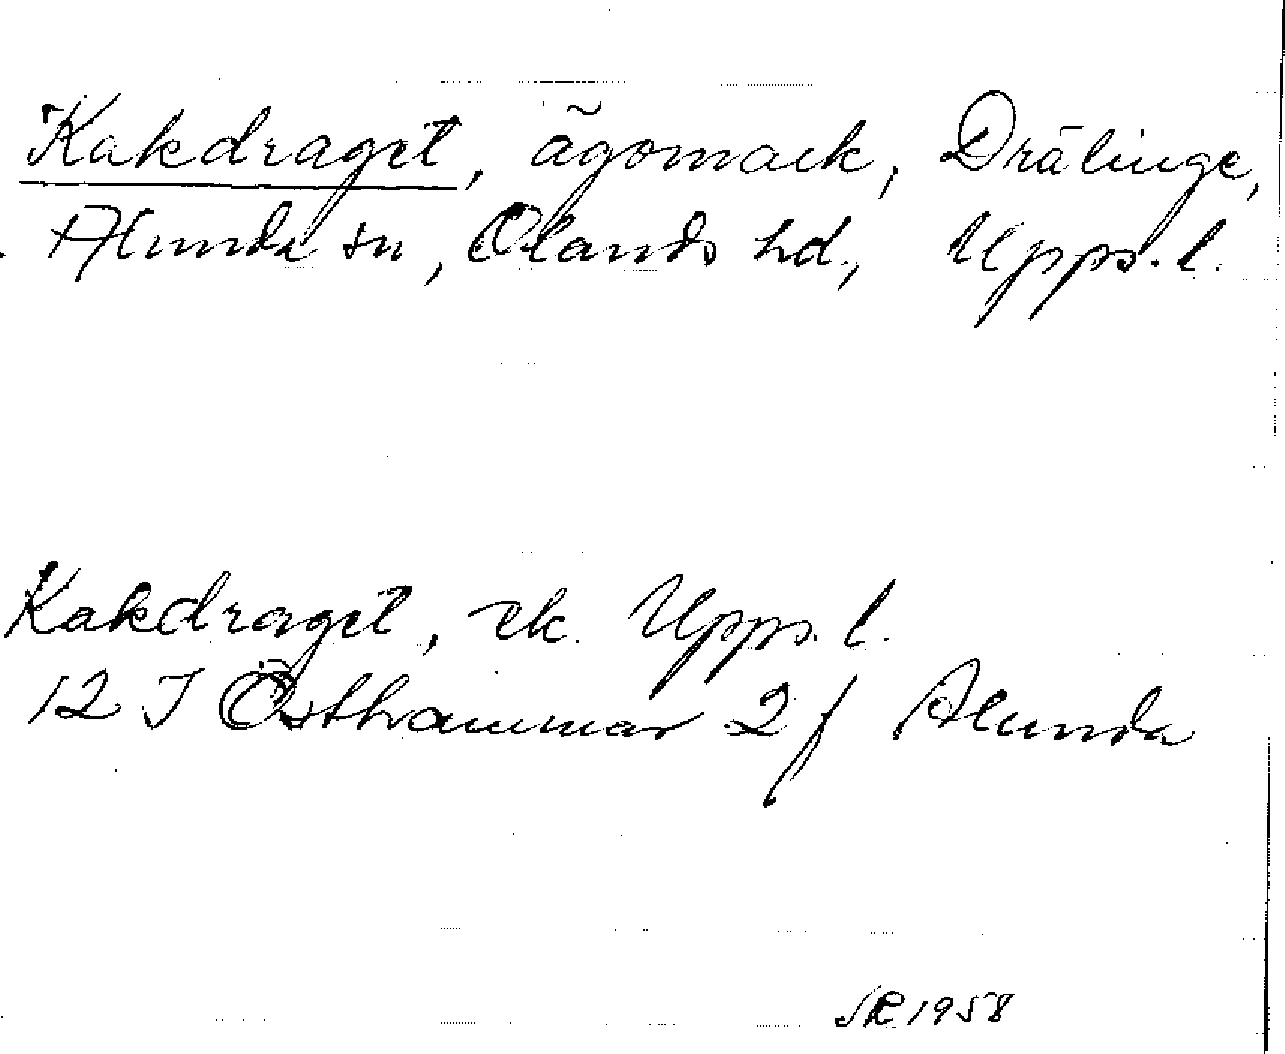 Kakdraget, ägomark, Drälinge,
Alunda sn, Olands hd., Upps. l.
Kakdraget, ek. Upps. l.
12 I Östhammar 2 f Alunda
SR 1958